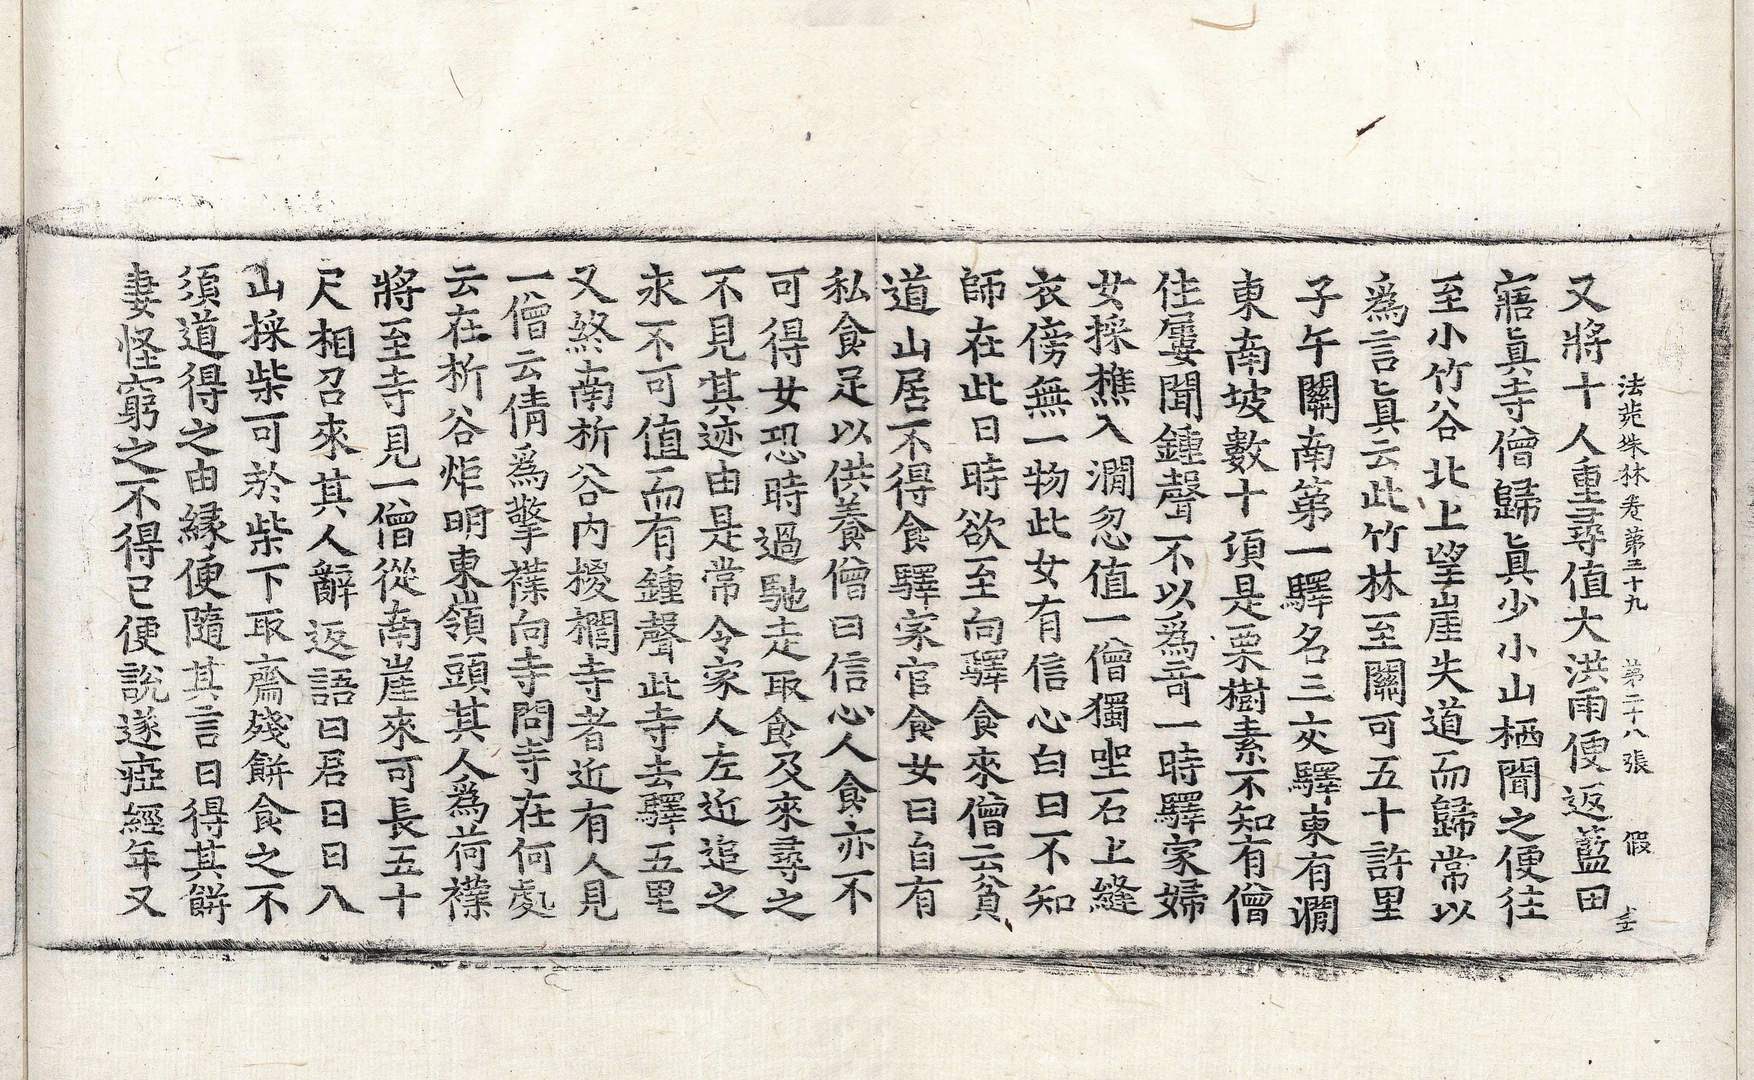 法苑珠林卷第三十九　第二十八張　假
又將十人重尋值大洪雨便返藍田
寤真寺僧歸真少小山栖聞之便往
至小竹谷北上望崖失道而歸常以
爲言真云此竹林至關可五十許里
子午關南第一驛名三交驛東有澗
東南坡數十項是栗樹素不知有僧
住屢聞鍾聲不以爲奇一時驛家婦
女採樵入澗忽值一僧獨坐石上縫
衣傍無一物此女有信心白曰不知
師在此日時欲至向驛食來僧云貧
道山居不得食驛家官食女曰自有
私食足以供養僧曰信心人食亦不
可得女恐時過馳走取食及來尋之
不見其迹由是常令家人左近追之
永不可值而有鍾聲此寺去驛五里
又終南析谷内撥棢寺者近有人見
一僧云倩爲擎襆向寺問寺在何處
云在析谷炬明東嶺頭其人爲荷襆
將至寺見一僧從南崖來可長五十
尺相召來其人辭返語曰君日日入
山採柴可於柴下取齋殘餅食之不
須道得之由緣便隨其言日得其餅
妻怪窮之不得已便說遂瘂經年又